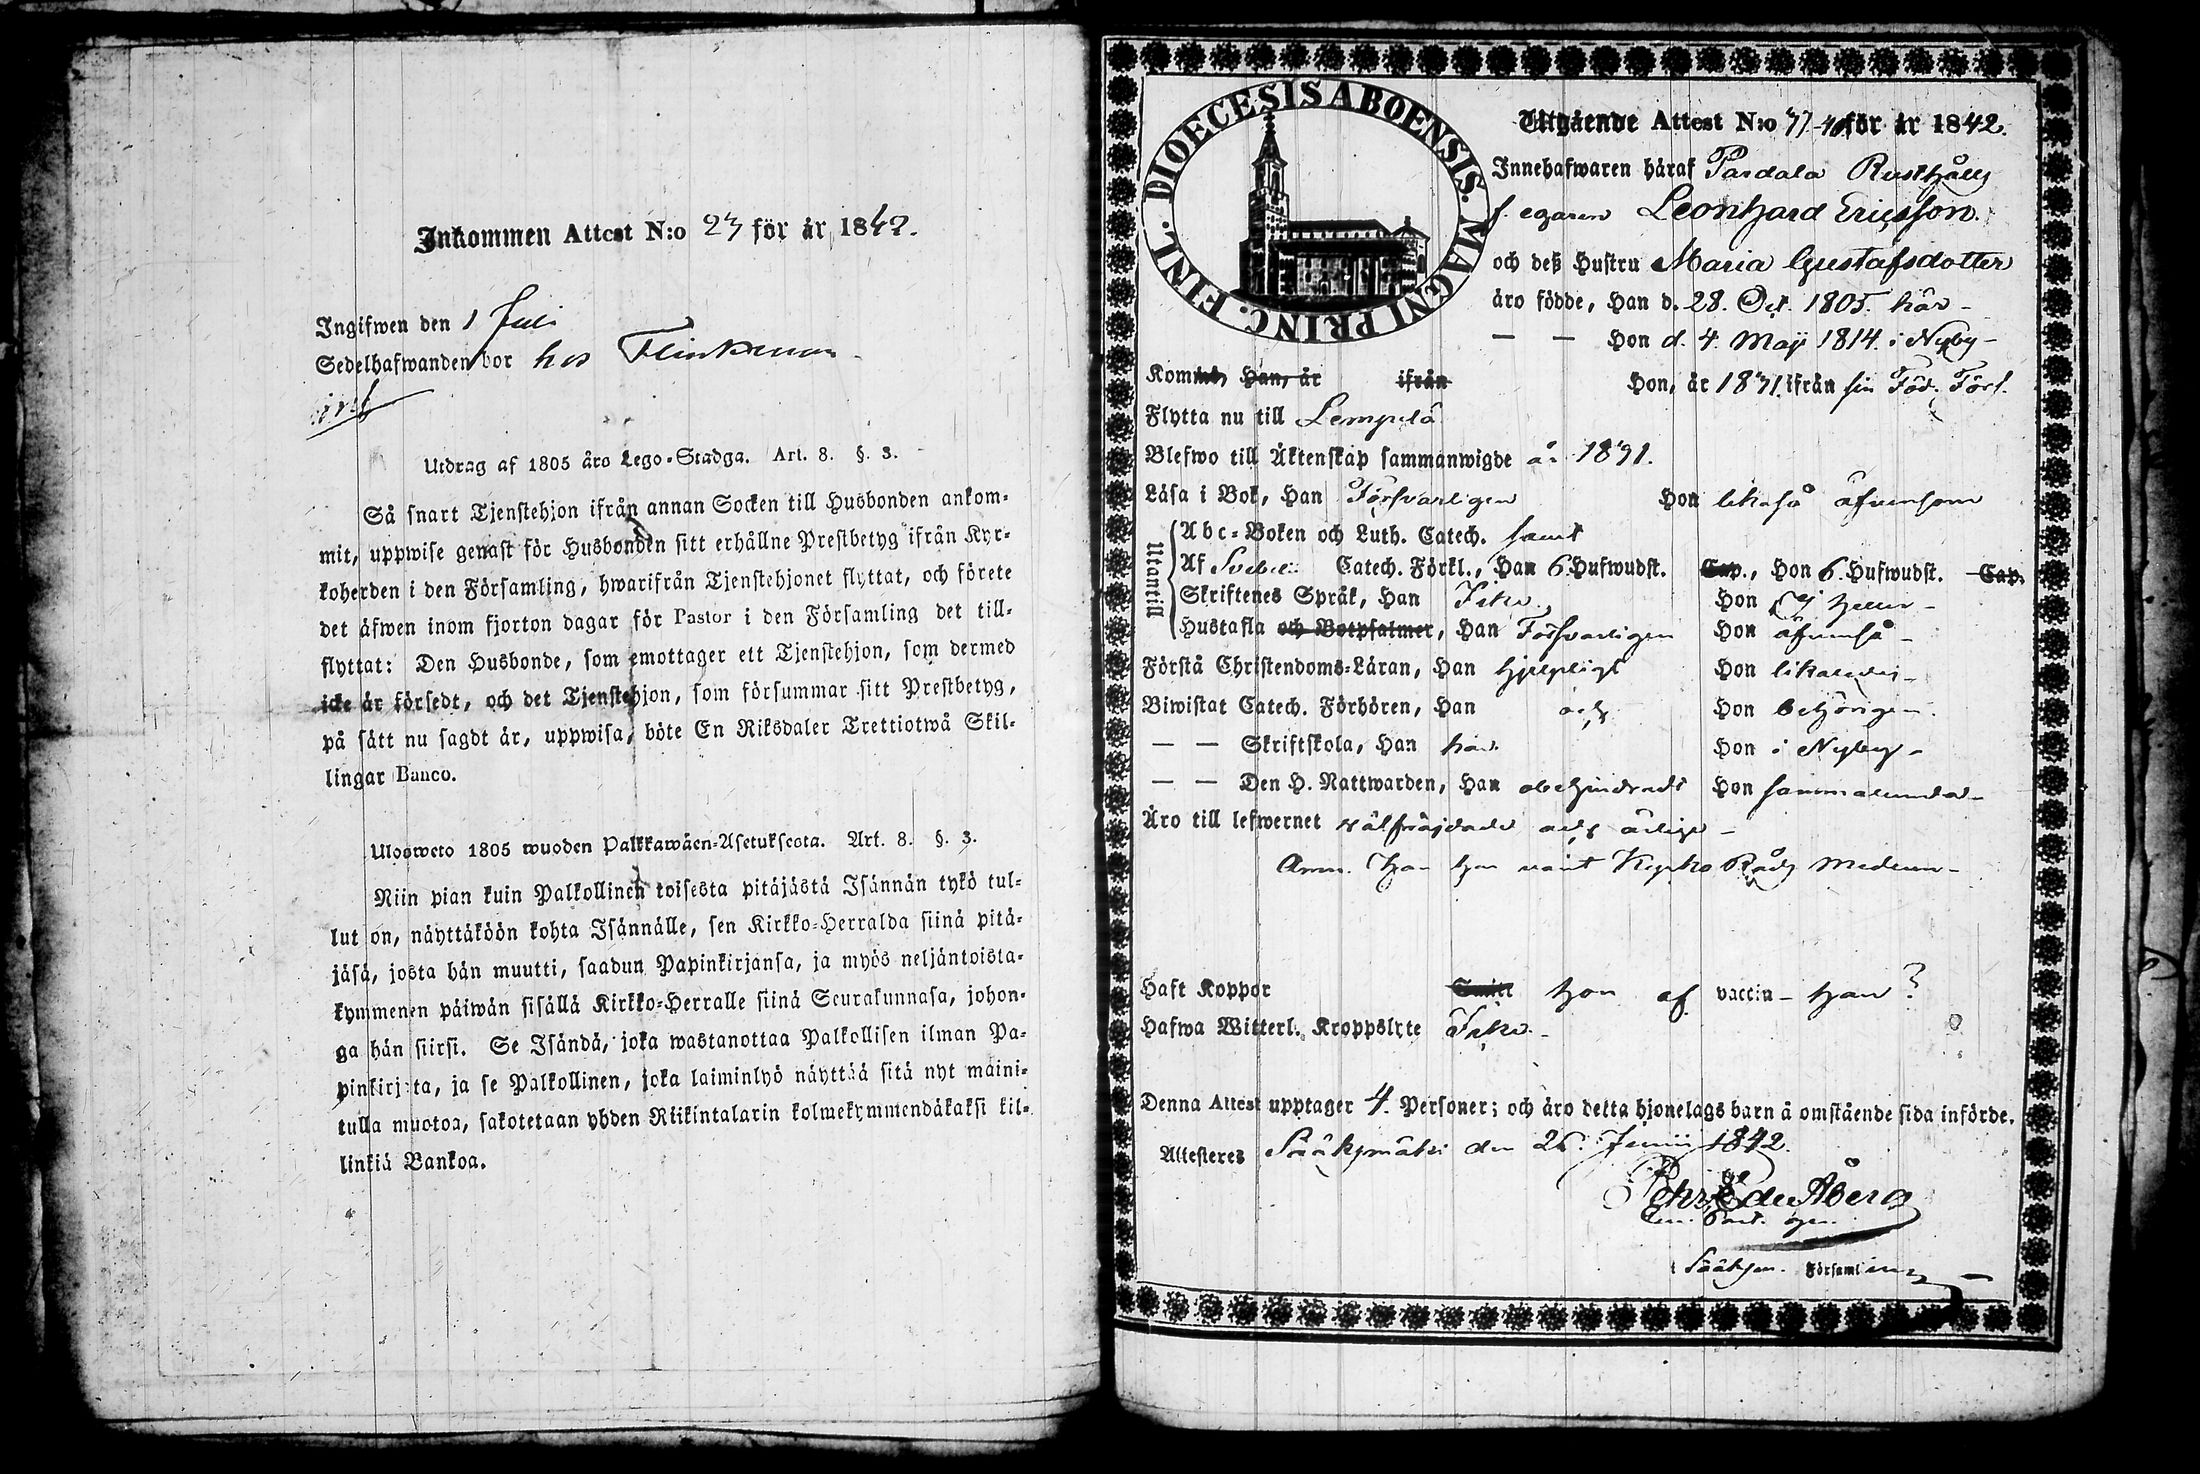 Inkommen Attest N:o 23 för år 1842.
Ingifwen den 1 Juli
Sedelhafwanden bor hos
Utdrag af 1805 års Lego-Stadga. Art. 8. §. 3.
Så snart Tjenstehjon ifrån annan Socken till Husbonden ankom-
mit, uppwise genast för Husbonden sitt erhållne Prestbetyg ifrån Kyr-
koherden i den Församling, hwarifrån Tjenstehjonet flyttat, och förete
det äfwen inom fjorton dagar för Pastor i den Församling det till-
flyttat: Den Husbonde, som emottager ett Tjenstehjon, som dermed
icke är försedt, och det Tjenstehjon, som försummar sitt Prestbetyg,
på sätt nu sagdt är, uppwisa, böte En Riksdaler Trettiotwå Skil-
lingar Banco.
Ulosweto 1805 wuoden Palkkawäen-Asetuksesta. Art. 8. §. 3.
Niin pian kuin Palkollinen toisesta pitäjästä Isännän tykö tul-
lut on, näyttäköön kohta Isännälle, sen Kirkko-Herralda siinä pitä-
jäsä, josta hän muutti, saadun Papinkirjansa, ja myös neljäntoista-
kymmenen päiwän sisällä Kirkko-Herralle siinä Seurakunnasa, johon-
ga hän siirsi. Se Isändä, joka wastanottaa Palkollisen ilman Pa-
pinkirjata, ja se Palkollinen, joka laiminlyö näyttää sitä nyt maini-
tulla muotoa, sakotetaan yhden Riikintalarin kolmekymmendäkaksi kil-
linkiä Bankoa.
DIOECESIS ABOENSIS. MAGNI PRINC. FINL.
Utgående Attest N:o för år 1842.
Innehafwaren häraf Pardala Rusthålls
f. egaren Leonhard Ericsson
och deß Hustru Maria Gustafsdotter
äro födde, Han d. 28. Oct. 1805. här -
— — Hon d. 4. Maji 1814. i Nyby -
Kommit, Han, år ifrån Hon, år 1831. ifrån sin Föd. Förs.
Flytta nu till Lempälä
Blefwo till Äktenskap sammanwigde år 1831.
Läsa i Bok, Han Försvarligen Hon likaså äfvensom
Utantill
Abc-Boken och Luth. Catech. samt
Af Svebel: Catech. Förkl., Han 6. Hufwudst. Cap., Hon 6. Hufwudst. Cap.
Skriftenes Språk, Han Icke Hon Ej heller -
Hustafla och Botpsalmer, Han Försvarligen Hon äfvenså -
Förstå Christendoms-Läran, Han hjelpligt Hon likaledes -
Biwistat Catech. Förhören, Han och Hon behörigen.
— — Skriftskola, Han här Hon i Nyby -
— — Den H. Nattwarden, Han obehindradt Hon sammalunda -
Äro till lefwernet välfräjdade och ärlige -
Anm. Han har varit Kyrko Råds Medlem -
Haft Koppor Smitt Hon af vaccin - Han ?
Hafwa Witterl. Kroppslyte Icke -
Denna Attest upptager 4. Personer; och äro detta hjonelags barn å omstående sida införde.
Attesteras Sääksmäki den 26. Junii 1842.
Åberg
Sääksm. Församling